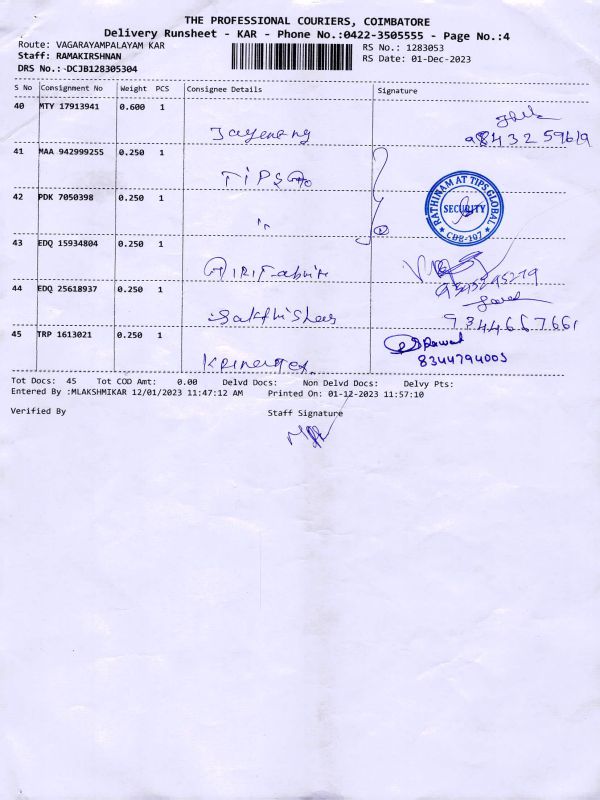 THE PROFESSIONAL COURIERS, COIMBATORE
Delivery Runsheet - KAR - Phone No.:0422-3505555 - Page No.:4
Route: VAGARAYAMPALAYAM KAR
RS No.: 1283053
Staff: RAMAKIRSHNAN
RS Date: 01-Dec-2023
DRS No.:-DCJB128305304
S No Consignment No Weight PCS Consignee Details Signature
40 MTY 17913941 0.600 1
41 MAA 942999255 0.250 1
TIPS
42 PDK 7050398 0.250 1
RATHINAM AT TIPS GLOBAL
SECURITY
CBE-107
43 EDQ 15934804 0.250 1
44 EDQ 25618937 0.250 1
9344667661
45 TRP 1613021 0.250 1
8344794003
Tot Docs: 45 Tot COD Amt: 0.00 Delvd Docs: Non Delvd Docs: Delvy Pts:
Entered By :MLAKSHMIKAR 12/01/2023 11:47:12 AM Printed On: 01-12-2023 11:57:10
Verified By Staff Signature